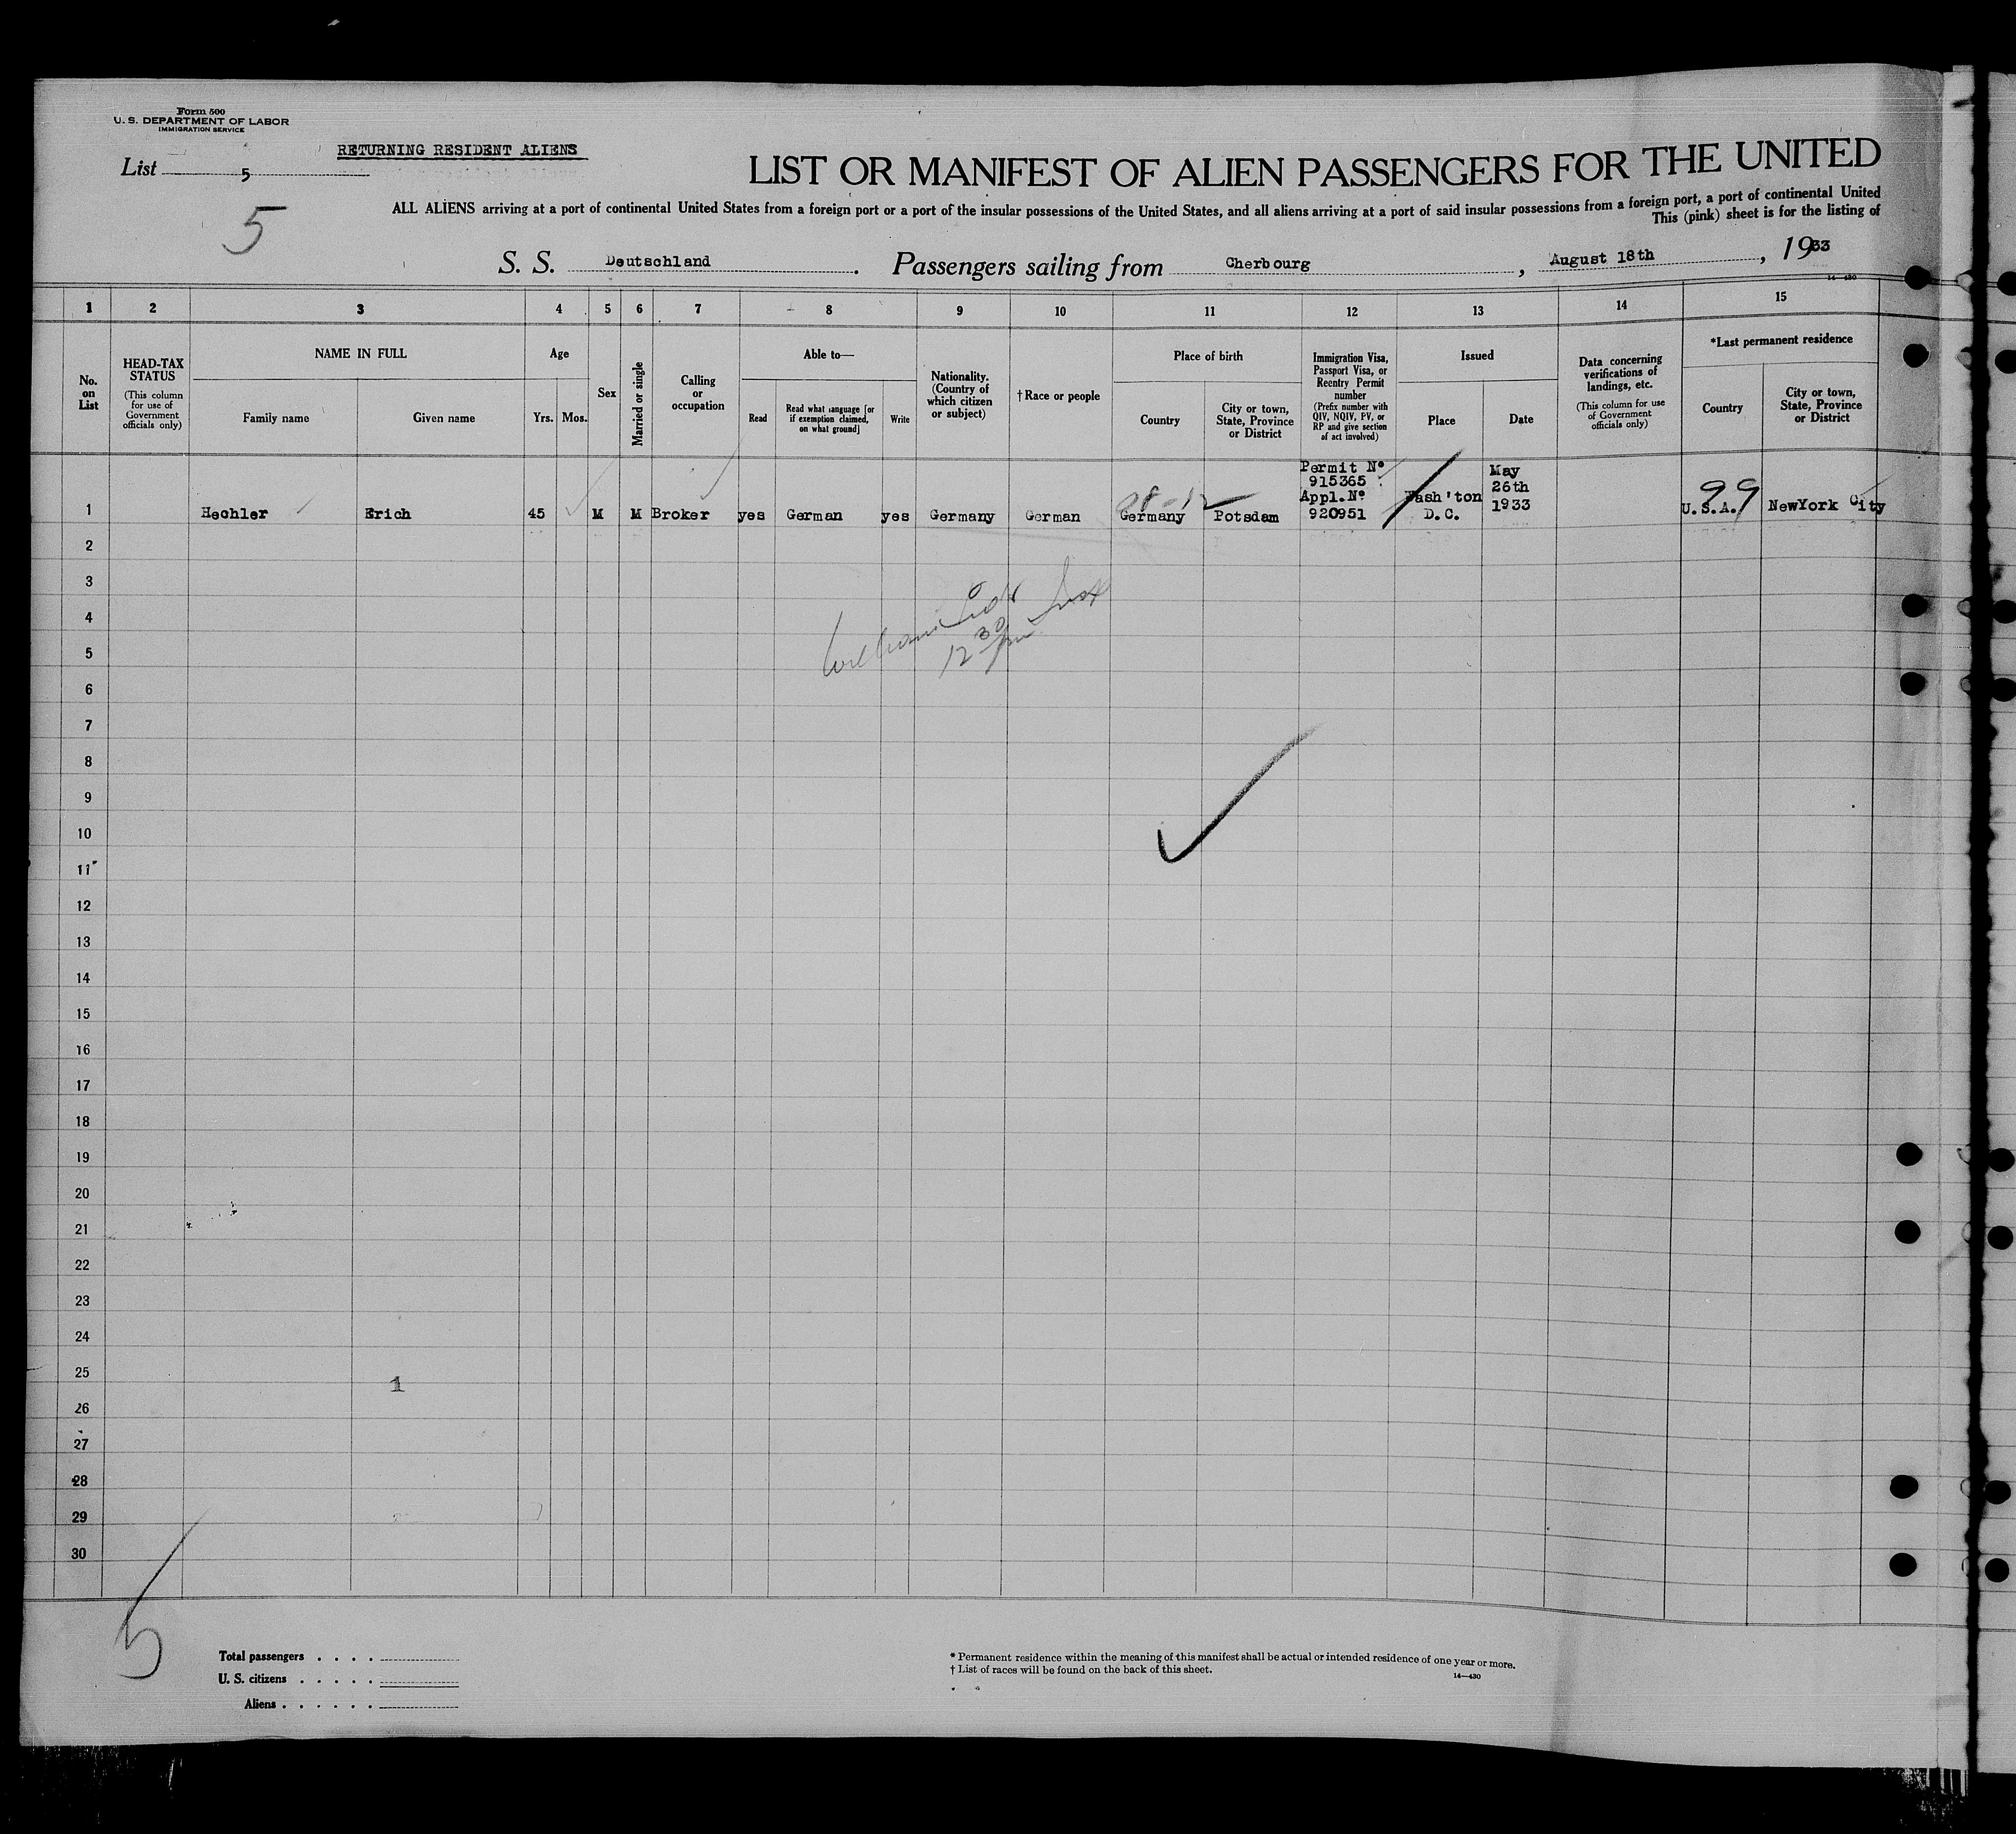 Form 500
U. S. DEPARTMENT OF LABOR
IMMIGRATION SERVICE
RETURNING RESIDENT ALIENS
List 5
5
LIST OR MANIFEST OF ALIEN PASSENGERS FOR THE UNITED
ALL ALIENS arriving at a port of continental United States from a foreign port or a port of the insular possessions of the United States, and all aliens arriving at a port of said insular possessions from a foreign port, a port of continental United
This (pink) sheet is for the listing of
S. S. Deutschland. Passengers sailing from Cherbourg, August 18th, 1933
14—430
1 2 3 4 5 6 7 8 9 10 11 12 13 14 15
No. on List
HEAD-TAX STATUS
(This column for use of Government officials only)
NAME IN FULL
Family name
Given name
Age
Yrs.
Mos.
Sex
Married or single
Calling or occupation
Able to—
Read
Read what language [or if exemption claimed, on what ground]
Write
Nationality. (Country of which citizen or subject)
†Race or people
Place of birth
Country
City or town, State, Province or District
Immigration Visa, Passport Visa, or Reentry Permit number
(Prefix number with QIV, NQIV, PV, or RP and give section of act involved)
Issued
Place
Date
Data concerning verifications of landings, etc.
(This column for use of Government officials only)
*Last permanent residence
Country
City or town, State, Province or District
Permit Nº
915365
Appl. Nº
920951
May
26th
1933
99
1 Hechler Erich 45 M M Broker yes German yes Germany German Germany Potsdam Wash'ton D.C. U.S.A. NewYork City
2
3
4
12 30 pm
5
6
7
8
9
10
11
12
13
14
15
16
17
18
19
20
21
22
23
24
25
1
26
27
28
29
30
5
Total passengers . . . .
U. S. citizens . . . . .
Aliens . . . . . .
* Permanent residence within the meaning of this manifest shall be actual or intended residence of one year or more.
† List of races will be found on the back of this sheet.
14—430